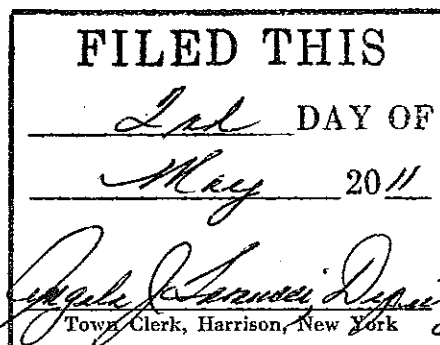 FILED THIS
2nd DAY OF
May 2011
Angela J.
Town Clerk, Harrison, New York